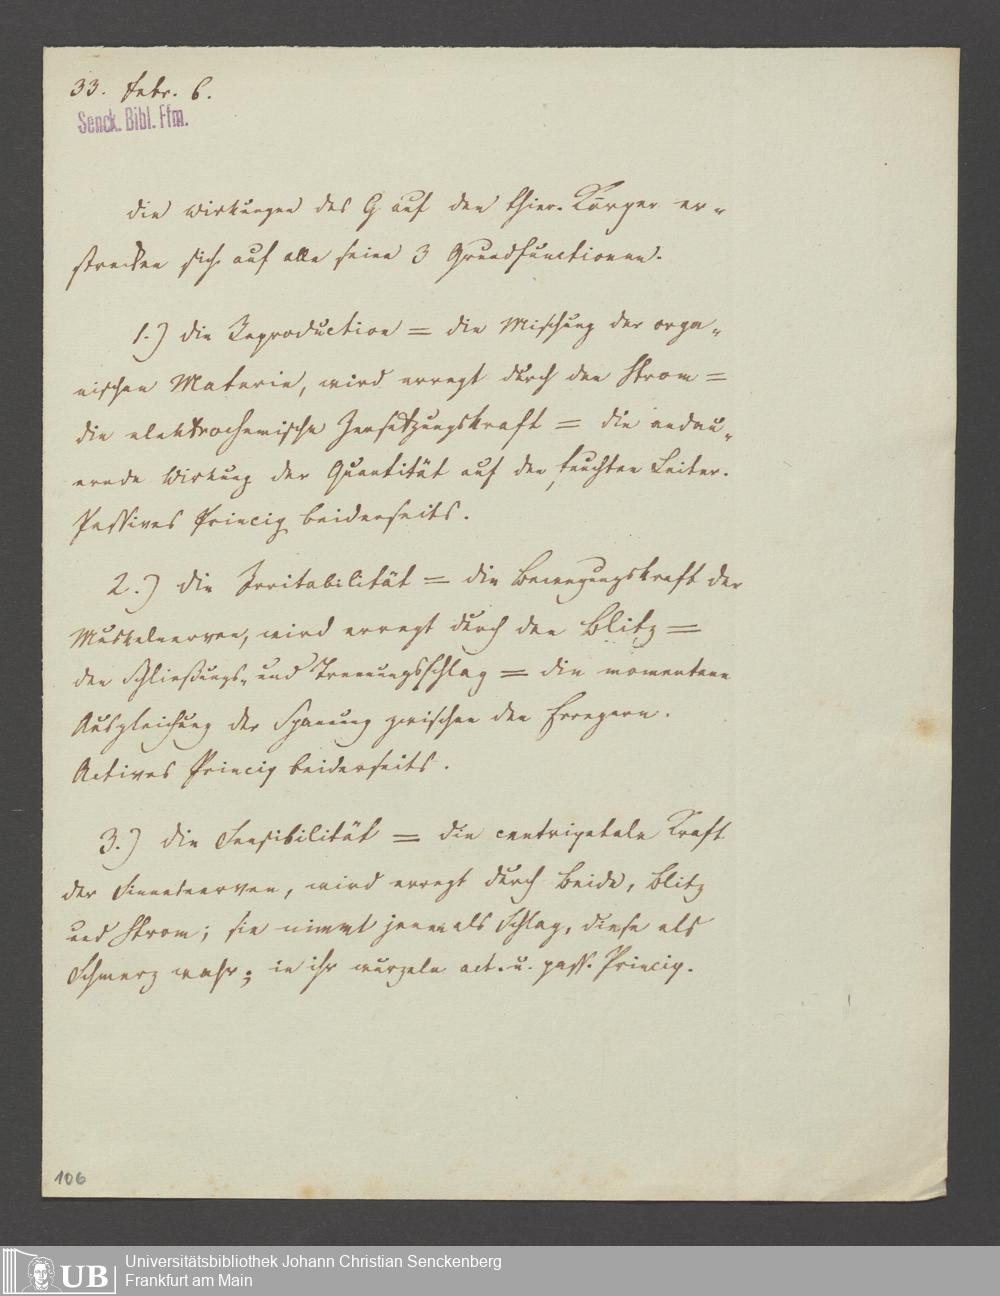 33. Febr. 6.
Senck. Bibl. Ffm.
die Wirkungen des G auf den thier. Körper er-
strecken sich auf alle seine 3 Grundfunctionen.
1.) die Reproduction = die Mischung der orga-
nischen Materie, wird erregt durch den Strom =
die elektrochemische Zersetzungskraft = die andau-
ernde Wirkung der Quantität auf den feuchten Leiter.
Passives Princip beiderseits.
2.) die Irritabilität = die Bewegungskraft der
Muskelnerven, wird erregt durch den Blitz =
den Schließungs- und Trennungsschlag = die momentane
Ausgleichung der Spanung zwischen den Erregern.
Actives Princip beiderseits.
3.) die Sensibilität = die centripetale Kraft
der Sinnesnerven, wird erregt durch beide, Blitz
und Strom; sie nimmt jenen als Schlag, diese als
Schmerz wahr; in ihr wurzeln act. u. pass. Princip.
106
UB
Universitätsbibliothek Johann Christian Senckenberg
Frankfurt am Main